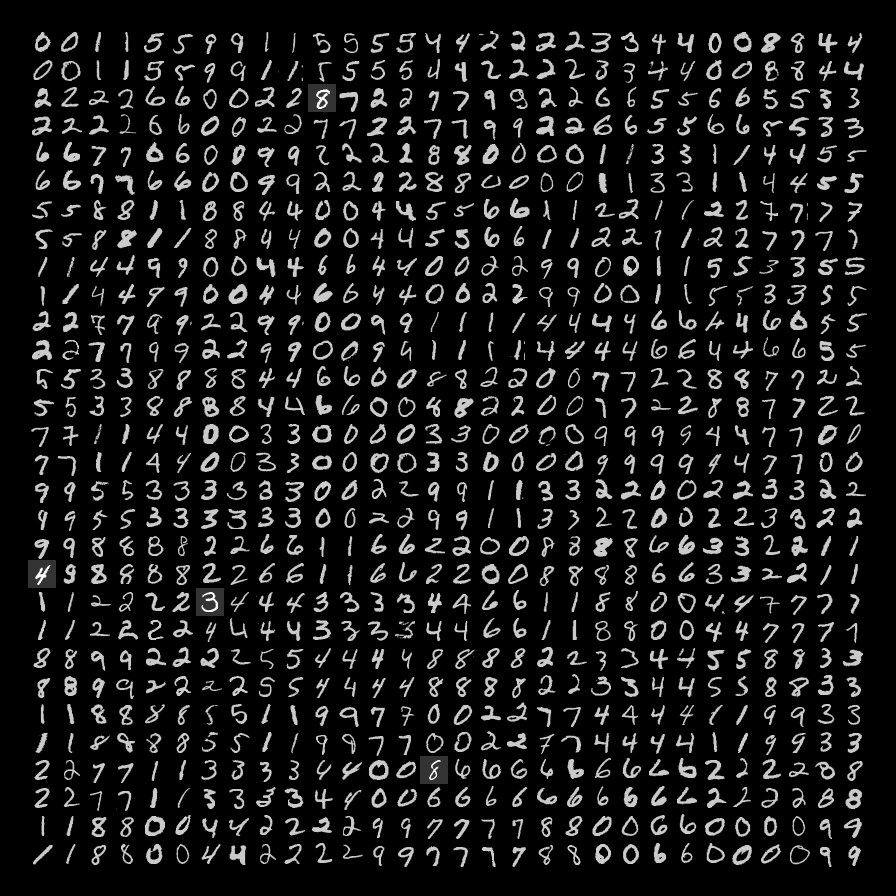 0 0 1 1 5 5 9 9 1 1 5 5 5 5 4 4 2 2 2 2 3 3 4 4 0 0 8 8 4 4
0 0 1 1 5 5 9 9 1 1 5 5 5 5 4 4 2 2 2 2 3 3 4 4 0 0 8 8 4 4
2 2 2 2 6 6 0 0 2 2 8 7 2 2 7 7 9 9 2 2 6 6 5 5 6 6 5 5 3 3
2 2 2 2 6 6 0 0 2 2 7 7 2 2 7 7 9 9 2 2 6 6 5 5 6 6 5 5 3 3
6 6 7 7 6 6 0 0 9 9 2 2 2 2 8 8 0 0 0 0 1 1 3 3 1 1 4 4 5 5
6 6 7 7 6 6 0 0 9 9 2 2 2 2 8 8 0 0 0 0 1 1 3 3 1 1 4 4 5 5
5 5 8 8 1 1 8 8 4 4 0 0 4 4 5 5 6 6 1 1 2 2 1 1 2 2 7 7 7 7
5 5 8 8 1 1 8 8 4 4 0 0 4 4 5 5 6 6 1 1 2 2 1 1 2 2 7 7 7 7
1 1 4 4 9 9 0 0 4 4 6 6 4 4 0 0 2 2 9 9 0 0 1 1 5 5 3 3 5 5
1 1 4 4 9 9 0 0 4 4 6 6 4 4 0 0 2 2 9 9 0 0 1 1 5 5 3 3 5 5
2 2 7 7 9 9 2 2 9 9 0 0 9 9 1 1 1 1 4 4 4 4 6 6 4 4 6 6 5 5
2 2 7 7 9 9 2 2 9 9 0 0 9 9 1 1 1 1 4 4 4 4 6 6 4 4 6 6 5 5
5 5 3 3 8 8 8 8 4 4 6 6 0 0 8 8 2 2 0 0 7 7 2 2 8 8 7 7 2 2
5 5 3 3 8 8 8 8 4 4 6 6 0 0 8 8 2 2 0 0 7 7 2 2 8 8 7 7 2 2
7 7 1 1 4 4 0 0 3 3 0 0 0 0 3 3 0 0 0 0 9 9 9 9 4 4 7 7 0 0
7 7 1 1 4 4 0 0 3 3 0 0 0 0 3 3 0 0 0 0 9 9 9 9 4 4 7 7 0 0
9 9 5 5 3 3 3 3 3 3 0 0 2 2 9 9 1 1 3 3 2 2 0 0 2 2 3 3 2 2
9 9 5 5 3 3 3 3 3 3 0 0 2 2 9 9 1 1 3 3 2 2 0 0 2 2 3 3 2 2
9 9 8 8 8 8 2 2 6 6 1 1 6 6 2 2 0 0 8 8 8 8 6 6 3 3 2 2 1 1
4 9 8 8 8 8 2 2 6 6 1 1 6 6 2 2 0 0 8 8 8 8 6 6 3 3 2 2 1 1
1 1 2 2 2 2 3 4 4 4 3 3 3 3 4 4 6 6 1 1 8 8 0 0 4 4 7 7 7 7
1 1 2 2 2 2 4 4 4 4 3 3 3 3 4 4 6 6 1 1 8 8 0 0 4 4 7 7 7 7
8 8 9 9 2 2 2 2 5 5 4 4 4 4 8 8 8 8 2 2 3 3 4 4 5 5 8 8 3 3
8 8 9 9 2 2 2 2 5 5 4 4 4 4 8 8 8 8 2 2 3 3 4 4 5 5 8 8 3 3
1 1 8 8 8 8 5 5 1 1 9 9 7 7 0 0 2 2 7 7 4 4 4 4 1 1 9 9 3 3
1 1 8 8 8 8 5 5 1 1 9 9 7 7 0 0 2 2 7 7 4 4 4 4 1 1 9 9 3 3
2 2 7 7 1 1 3 3 3 3 4 4 0 0 8 6 6 6 6 6 6 6 6 6 2 2 2 2 8 8
2 2 7 7 1 1 3 3 3 3 4 4 0 0 6 6 6 6 6 6 6 6 6 6 2 2 2 2 8 8
1 1 8 8 0 0 4 4 2 2 2 2 9 9 7 7 7 7 8 8 0 0 6 6 0 0 0 0 9 9
1 1 8 8 0 0 4 4 2 2 2 2 9 9 7 7 7 7 8 8 0 0 6 6 0 0 0 0 9 9